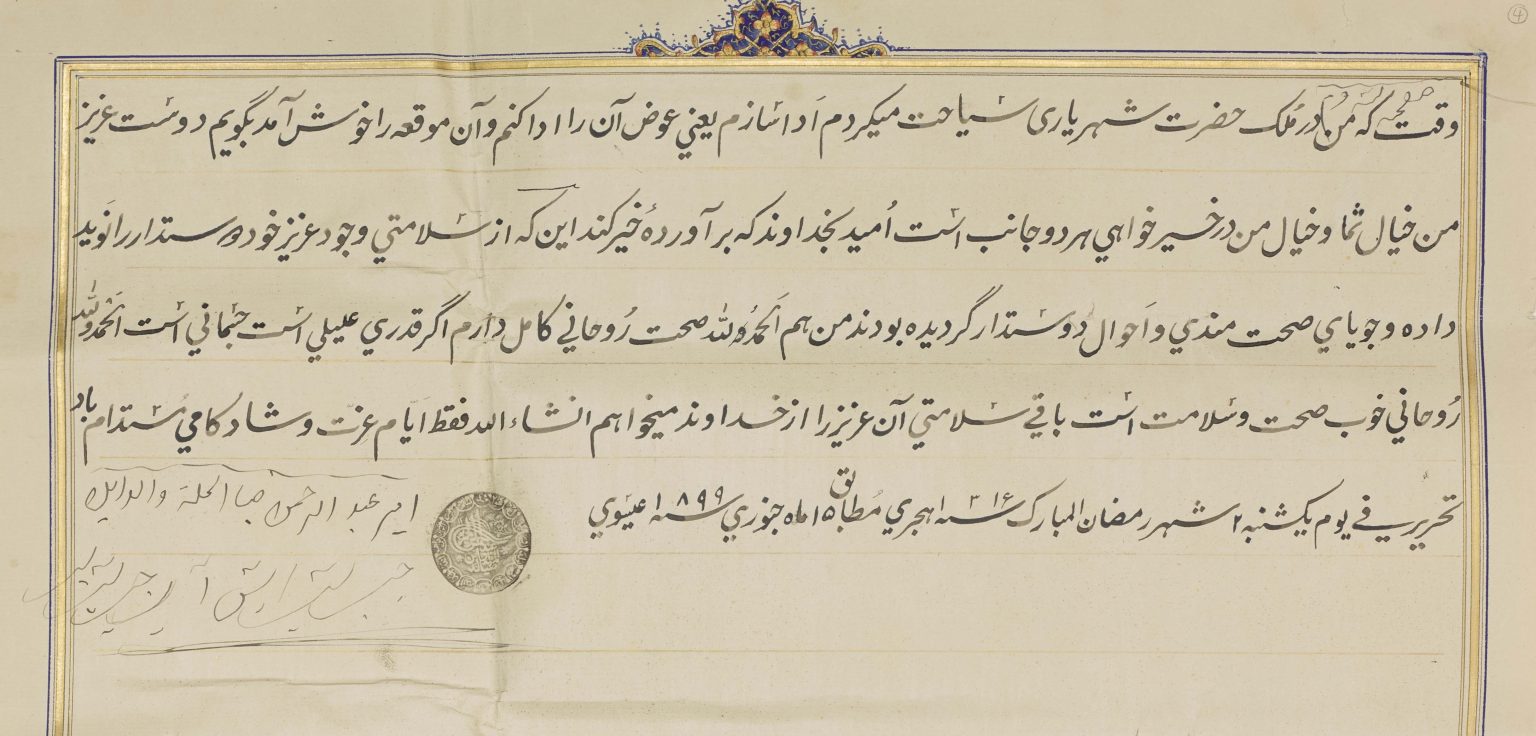 ④
وقتیکه من در ملک حضرت شهریاری سیاحت میکردم اَدا سازم یعني عوض آن را ادا کنم و آن موقعه را خوش آمد بگویم دوست عزیز
من خیال شما و خیال من در خیر خواهي هر دو جانب است اُمید بخداوند که بر آوردهٔ خیر کند این که از سلامتي وجود عزیز خود دوستدار را نَوید
داده و جویاي صحت مندي و اَحوال دوستدار گردیده بودند من هم اَلحمدُ لله صحت رُوحاني کامل دارم اگر قدري علیلي است جسماني است اَلحمدُ لله
رُوحاني خوب صحت و سلامت است باقي سلامتي آن عزیز را از خداوند میخواهم انشاء الله فقط ایّام عزّت و شادکامي مُستدام باد
تحریر في یوم یکشنبه ۲ شهر رمضان المبارک سنه ۱۳۱۶ هجري مُطابق ۱۵ ماه جنوري سنه ۱۸۹۹ عیسوي
امیر عبد الرحمن ضیا الملة والدین